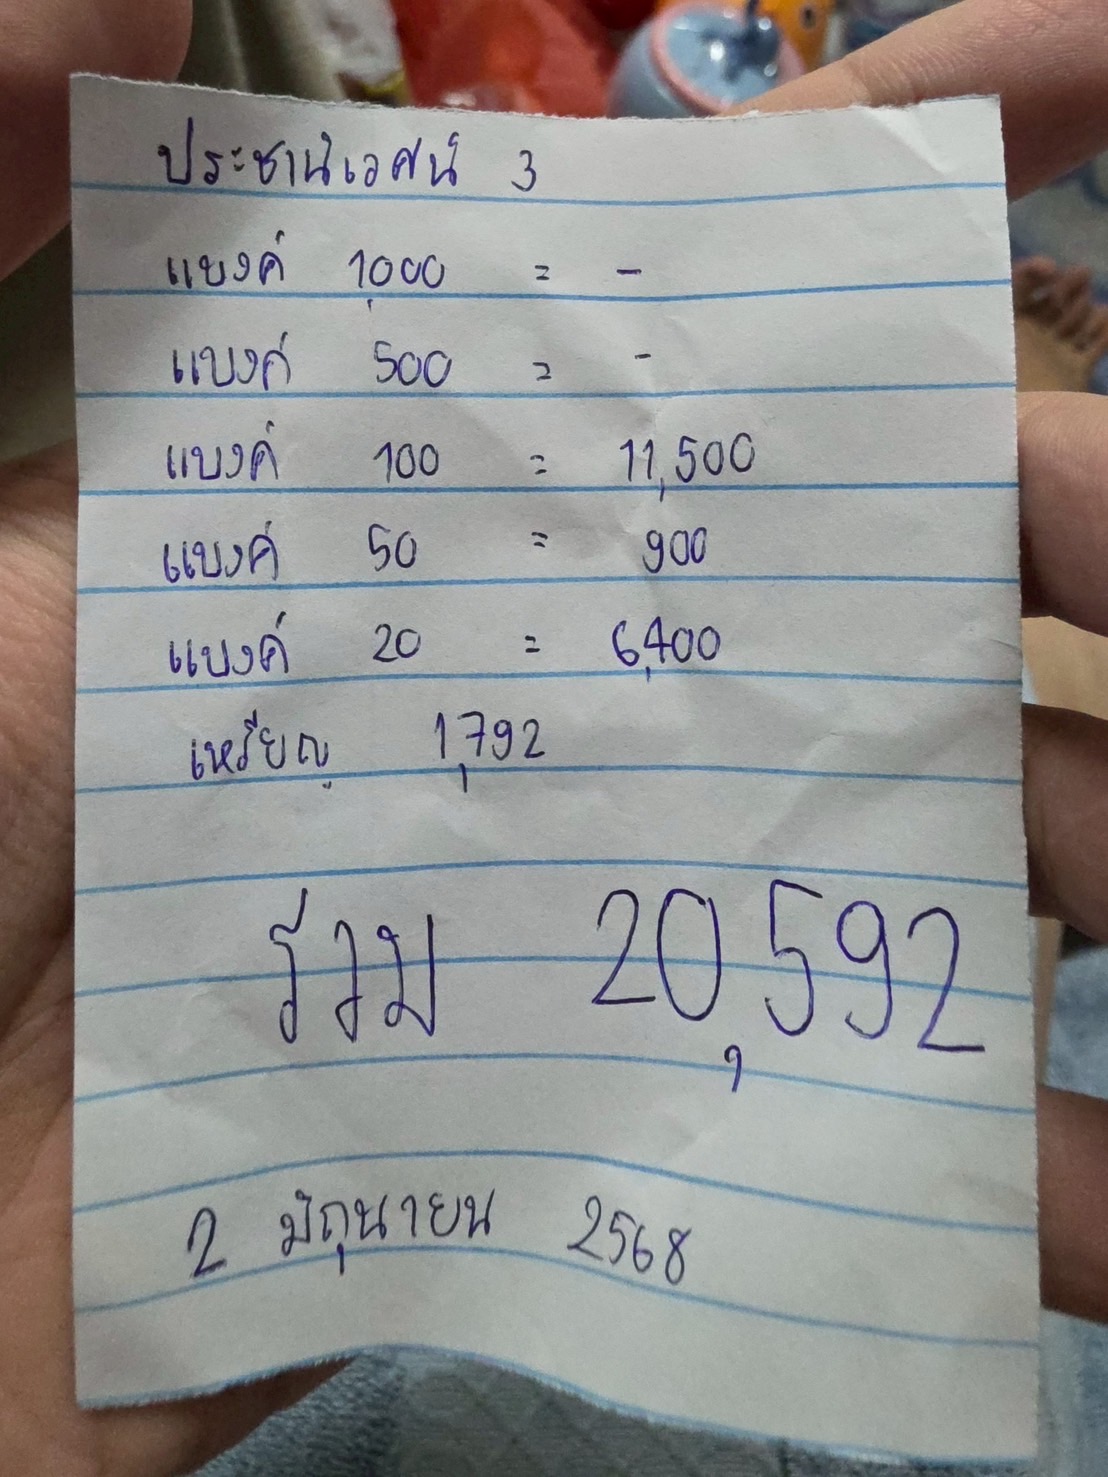 ประชานิเวศน์ 3
แบงค์ 1,000 = -
แบงค์ 500 = -
แบงค์ 100 = 11,500
แบงค์ 50 = 900
แบงค์ 20 = 6,400
เหรียญ 1,792
รวม 20,592
2 มิถุนายน 2568